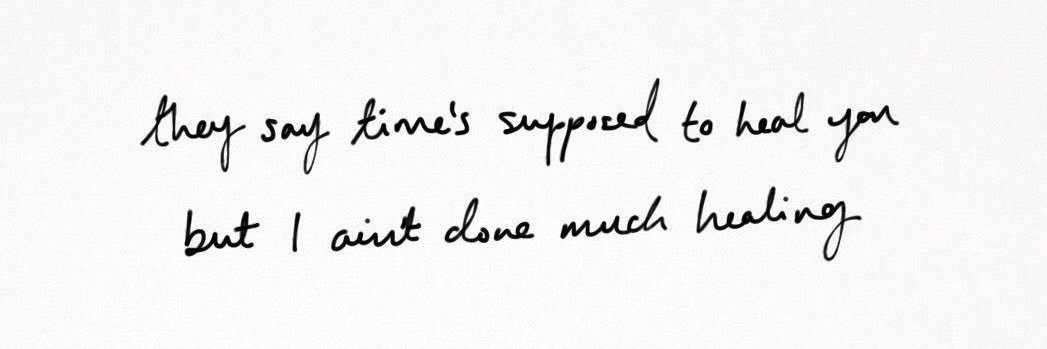 they say time's supposed to heal you
but I ain't done much healing